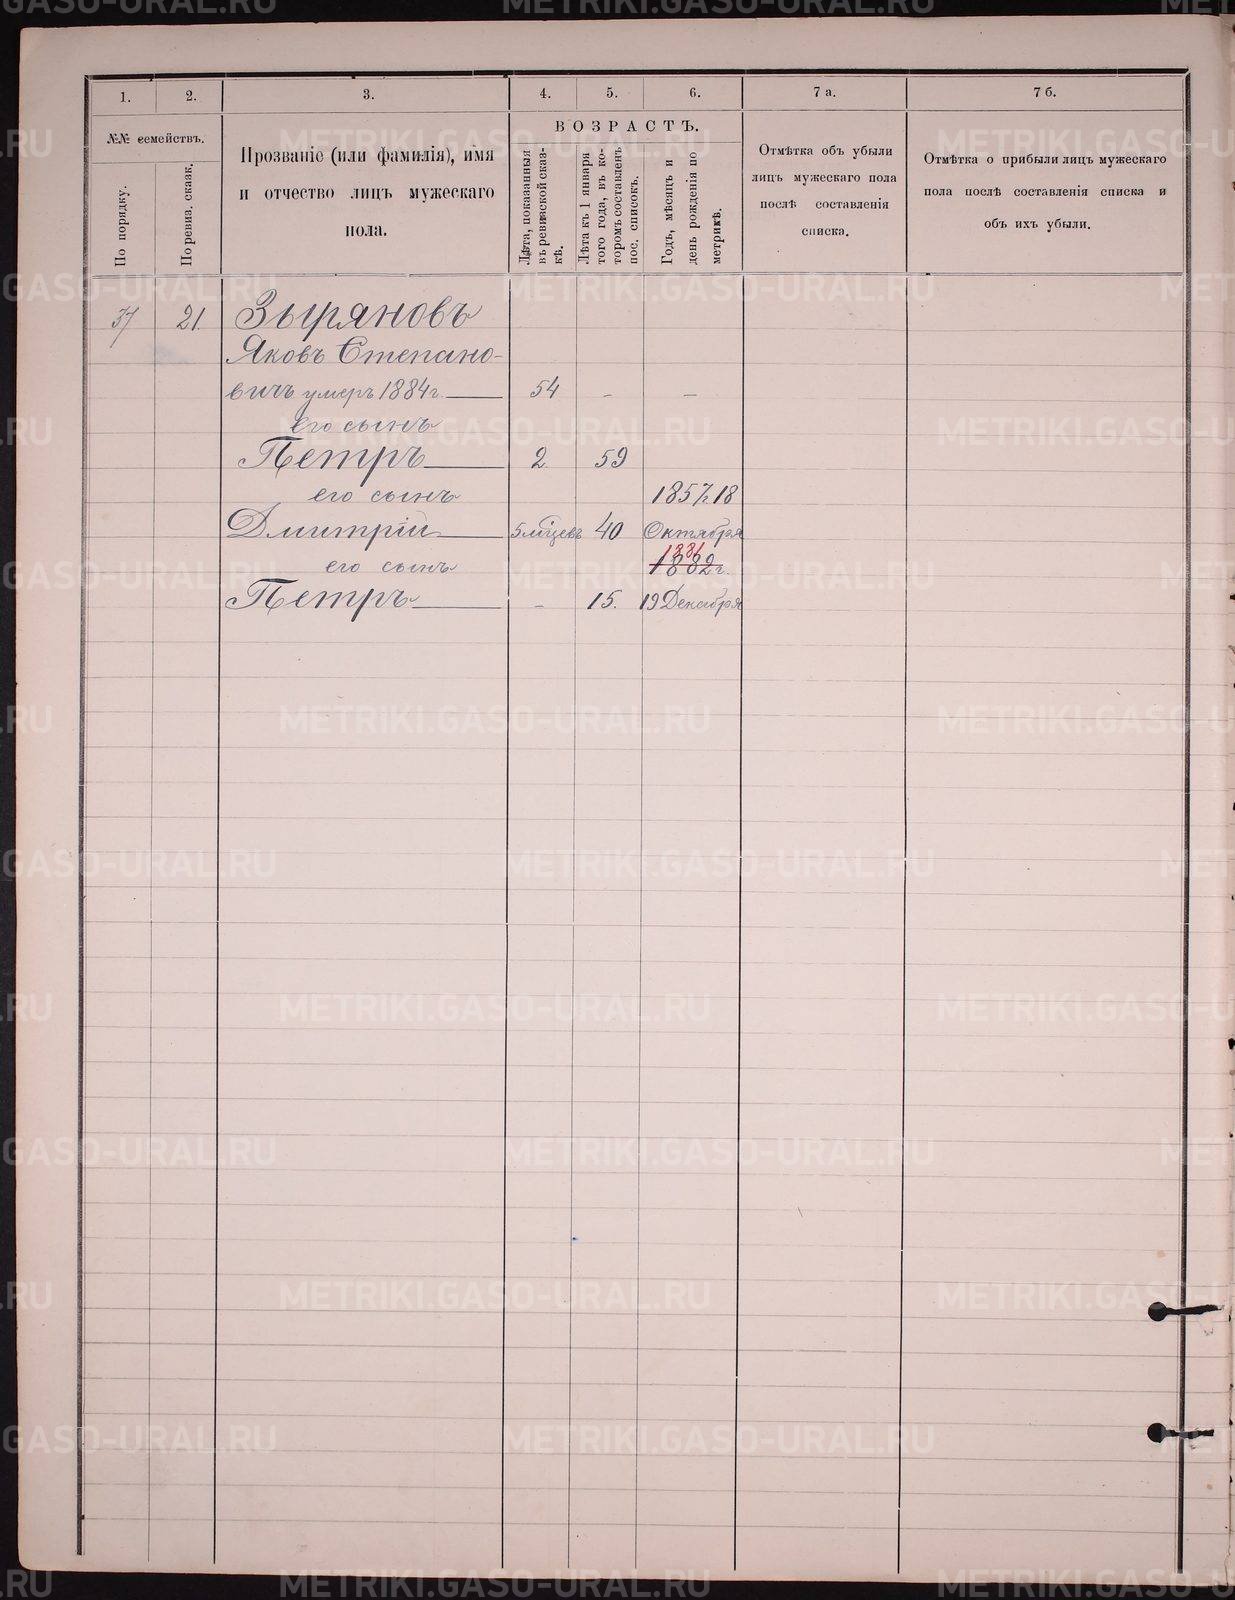 1.
2.
3.
4.
5.
6.
7 а.
7 б.
№№ семействъ.
По порядку.
По ревиз. сказк.
Прозваніе (или фамилія), имя
и отчество лицъ мужескаго
пола.
ВОЗРАСТЪ.
Лѣта, показанныя
въ ревизской сказ-
кѣ.
Лѣта къ 1 января
того года, въ ко-
торомъ составленъ
пос. списокъ.
Годъ, мѣсяцъ и
день рожденія по
метрикѣ.
Отмѣтка объ убыли
лицъ мужескаго пола
послѣ составленія
списка.
Отмѣтка о прибыли лицъ мужескаго
пола послѣ составленія списка и
объ ихъ убыли.
37 21. Зыряновъ
Яковъ Степано-
вичъ умеръ 1884 г. 54 - -
его сынъ
Петръ 2 59
его сынъ 1857 г. 18
Дмитрій 5 мѣцевъ 40 Октября
1881
его сынъ 1882 г.
Петръ - 15. 19 Декабря
METRIKI.GASO-URAL.RU